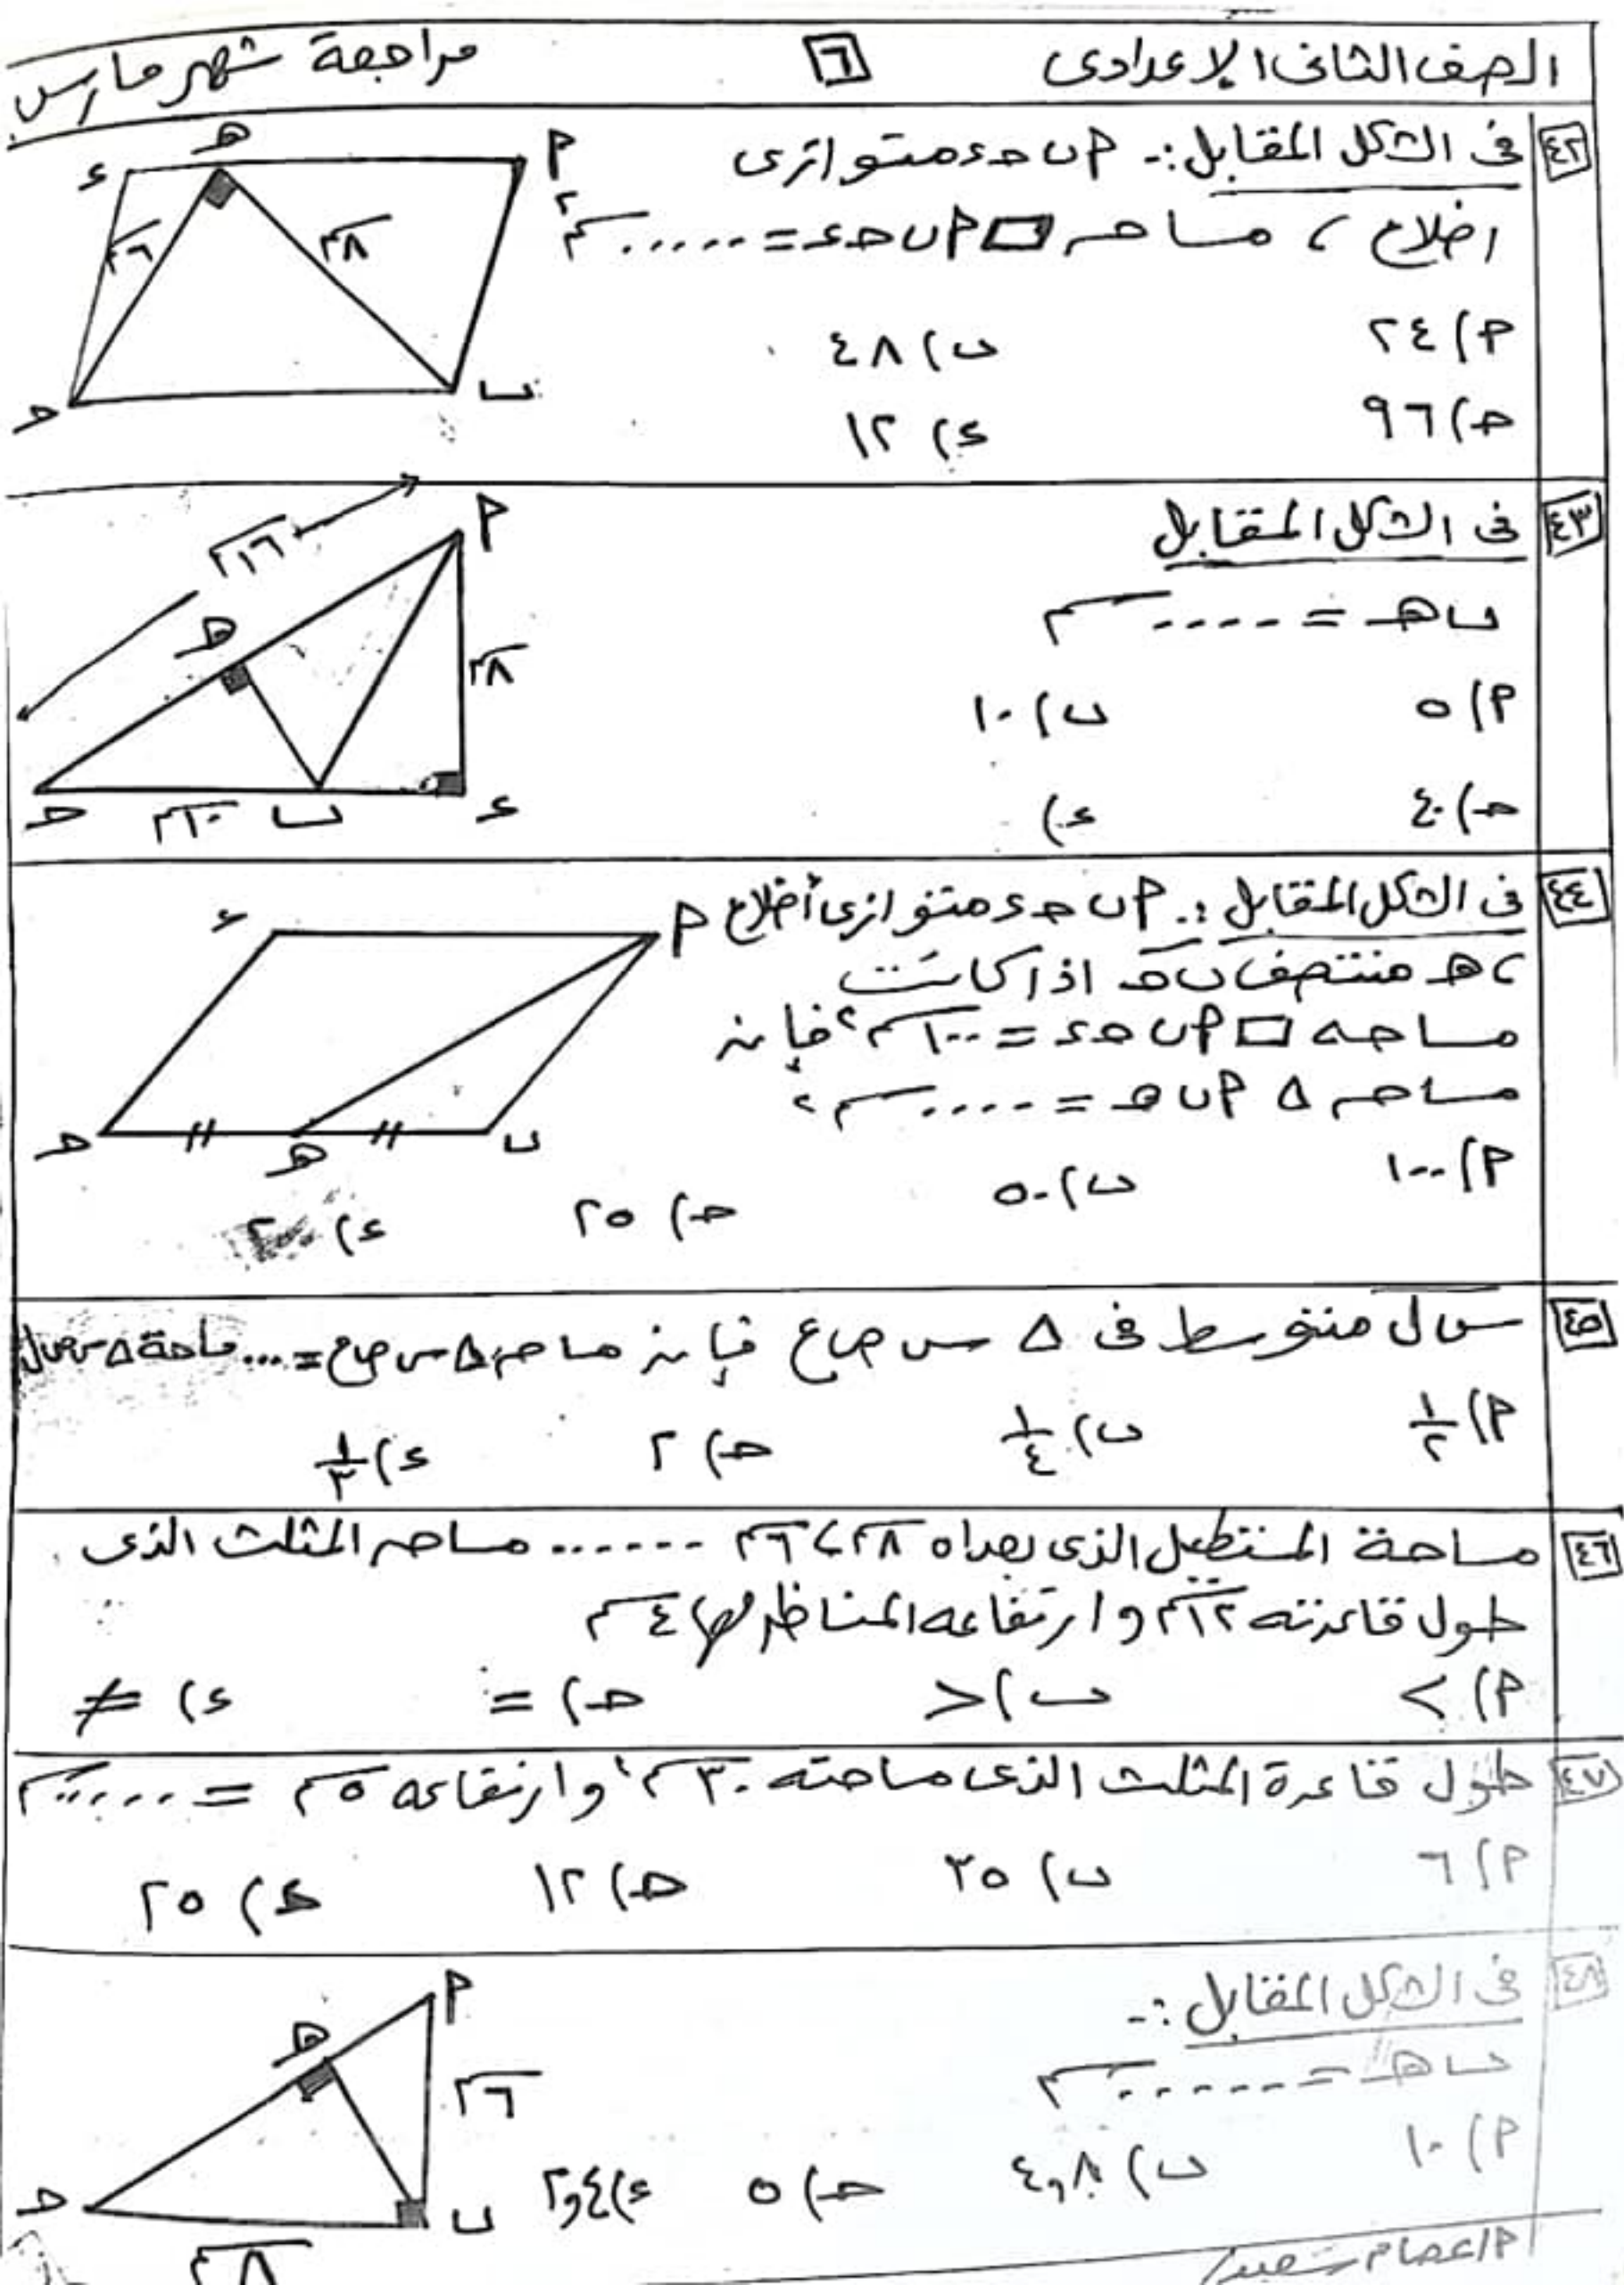 الصف الثانى الإعدادى ٦ مراجعة شهر مارس
٤٢ فى الشكل المقابل :- P ب ح ء متوازى
اضلاع ، مساحه ▱ P ب ح ء = ...... سم٢
P) ٢٤ ب) ٤٨
ح) ٩٦ ء) ١٢
P
هـ
ء
٨سم
٦سم
ب
ح
٤٣ فى الشكل المقابل
ب هـ = .... سم
P) ٥ ب) ١٠
ح) ٤٠ ء)
P
١٦سم
هـ
٨سم
ء
ب
١٠سم
ح
٤٤ فى الشكل المقابل :. P ب ح ء متوازى أضلاع
، هـ منتصف ب ح اذا كانت
مساحه ▱ P ب ح ء = ١٠٠ سم٢ فإنه
مساحه Δ P ب هـ = ..... سم٢
P) ١٠٠ ب) ٥٠ ح) ٢٥ ء)
P
ء
ب
هـ
ح
٤٥ س ل متوسط فى Δ س ص ع فإنه مساحه Δ س ص ع = ... مساحة Δ س ص ل
P) ١/٢ ب) ١/٤ ح) ٢ ء) ١/٣
٤٦ مساحة المستطيل الذى بعداه ٨سم ، ٦سم ...... مساحه المثلث الذى
طول قاعدته ١٢سم وارتفاعه المناظر لها ٤سم
P) < ب) > ح) = ء) ≠
٤٧ طول قاعدة المثلث الذى مساحته ٣٠سم٢ وارتفاعه ٥سم = ...... سم
P) ٦ ب) ٣٥ ح) ١٢ ء) ٢٥
٤٨ فى الشكل المقابل :-
ب هـ = ...... سم
P) ١٠ ب) ٤,٨ ح) ٥ ء) ٢,٤
P
هـ
٦سم
ب
ح
٨سم
P/عصام